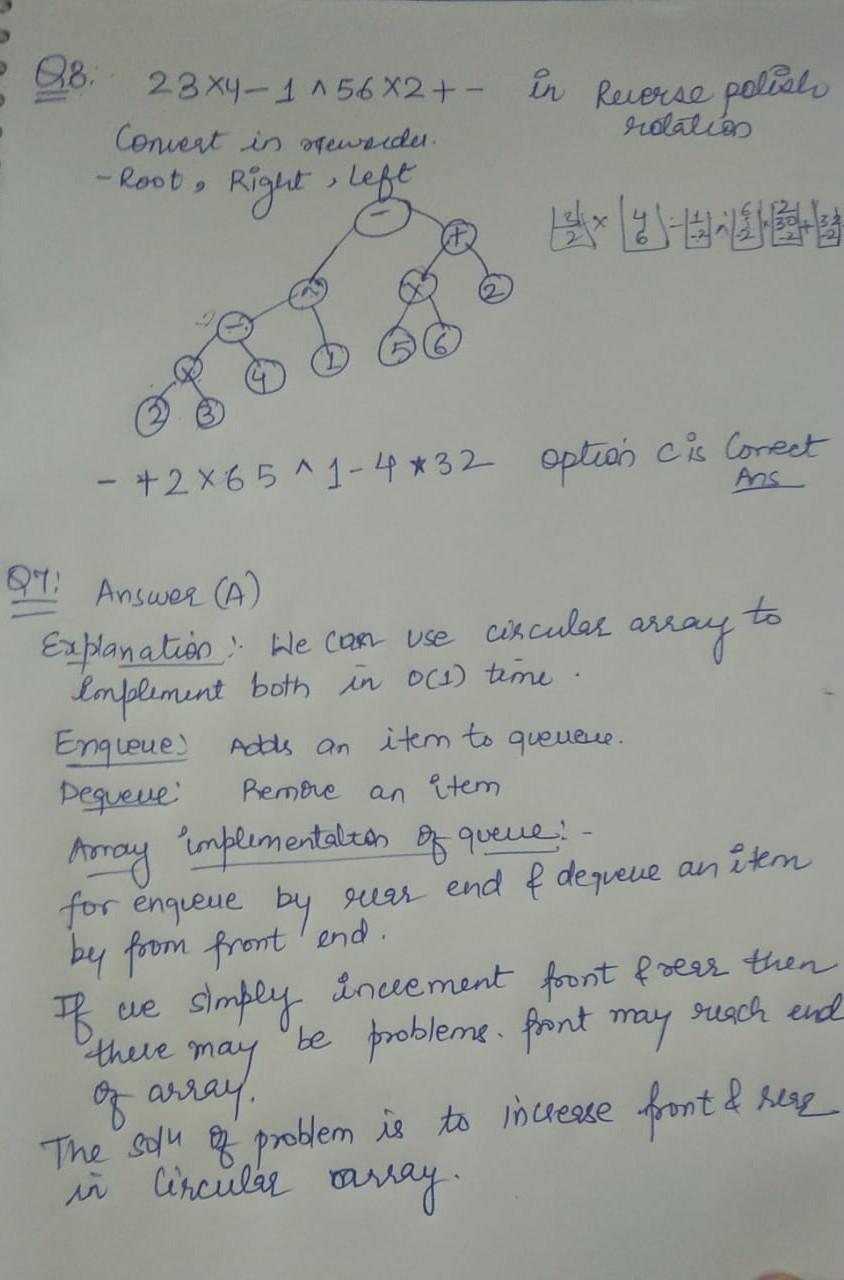 Q8: 23×4-1^56×2+- in Reverse polish
rotation
Convert in
- Root, Right, left
-
+
^
×
2
-
×
4
1
5
6
2
3
- +2×65^1-4*32 option c is Correct
Ans
Q7: Answer (A)
Explanation: We can use circular array to
implement both in O(1) time.
Enqueue: Adds an item to queueue.
Dequeue: Remove an item
Array implementation of queue:-
for enqueue by rear end & dequeue an item
by from front end.
If we simply increment front & rear then
there may be problems. front may reach end
of array.
The soln of problem is to increase front & rear
in Circular array.